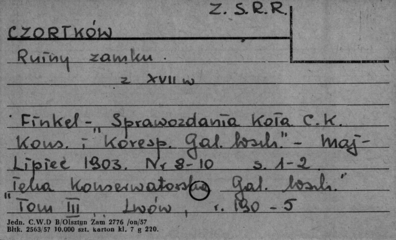 Z. S. R. R.
CZORTKÓW
Ruiny zamku
z XVII w
Finkel - Sprawozdania Koła C.K.
Kons. i "Koresp. Gal. wsch." - maj-
Lipiec 1903. Nr 8-10 s. 1-2
"Teka Konserwatorska Gal. wsch."
Tom III, Lwów, r. 190 - 5
Jedn. C.W.D B/Olsztyn Zam 2776 /un/57
Bltk. 2563/57 10.000 szt. karton kl. 7 g 220.